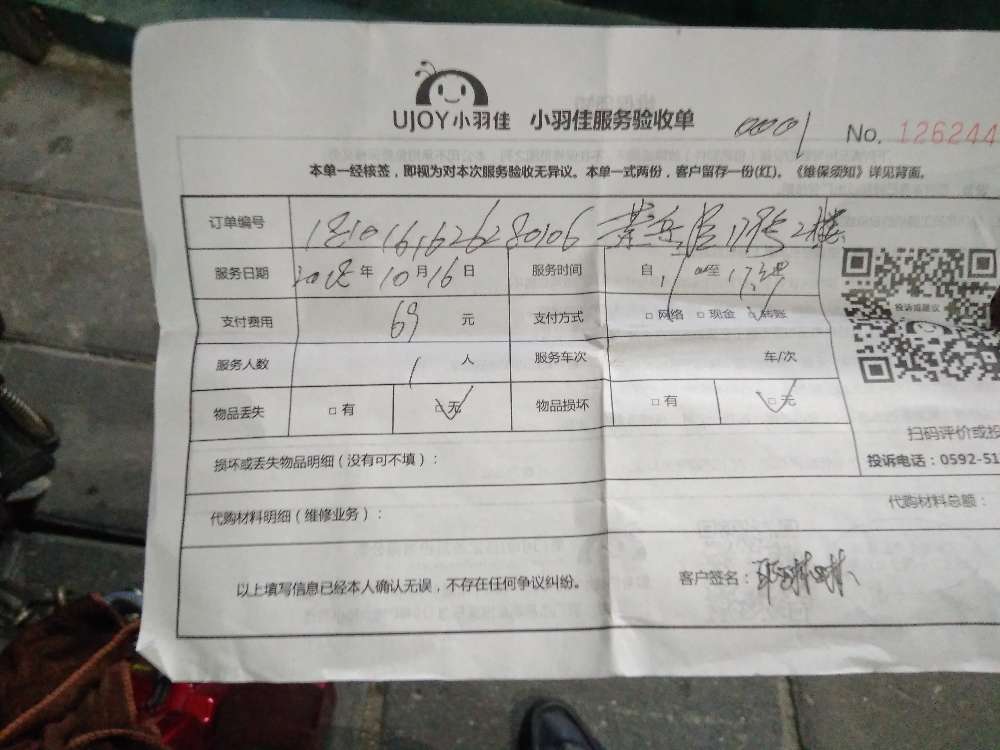 UJOY小羽佳 小羽佳服务验收单 0001 No. 126244
本单一经核签，即视为对本次服务验收无异议。本单一式两份，客户留存一份(红)。《维保须知》详见背面。
订单编号 1810161626280106 17号2楼
服务日期 2018年10月16日 服务时间 自 至
投诉或建议
支付费用 69 元 支付方式 □网络 □现金 □转账
服务人数 1 人 服务车次 车/次
物品丢失 □有 □无 物品损坏 □有 □无
扫码评价或投
投诉电话：0592-51
损坏或丢失物品明细（没有可不填）：
代购材料明细（维修业务）： 代购材料总额：
以上填写信息已经本人确认无误，不存在任何争议纠纷。 客户签名：